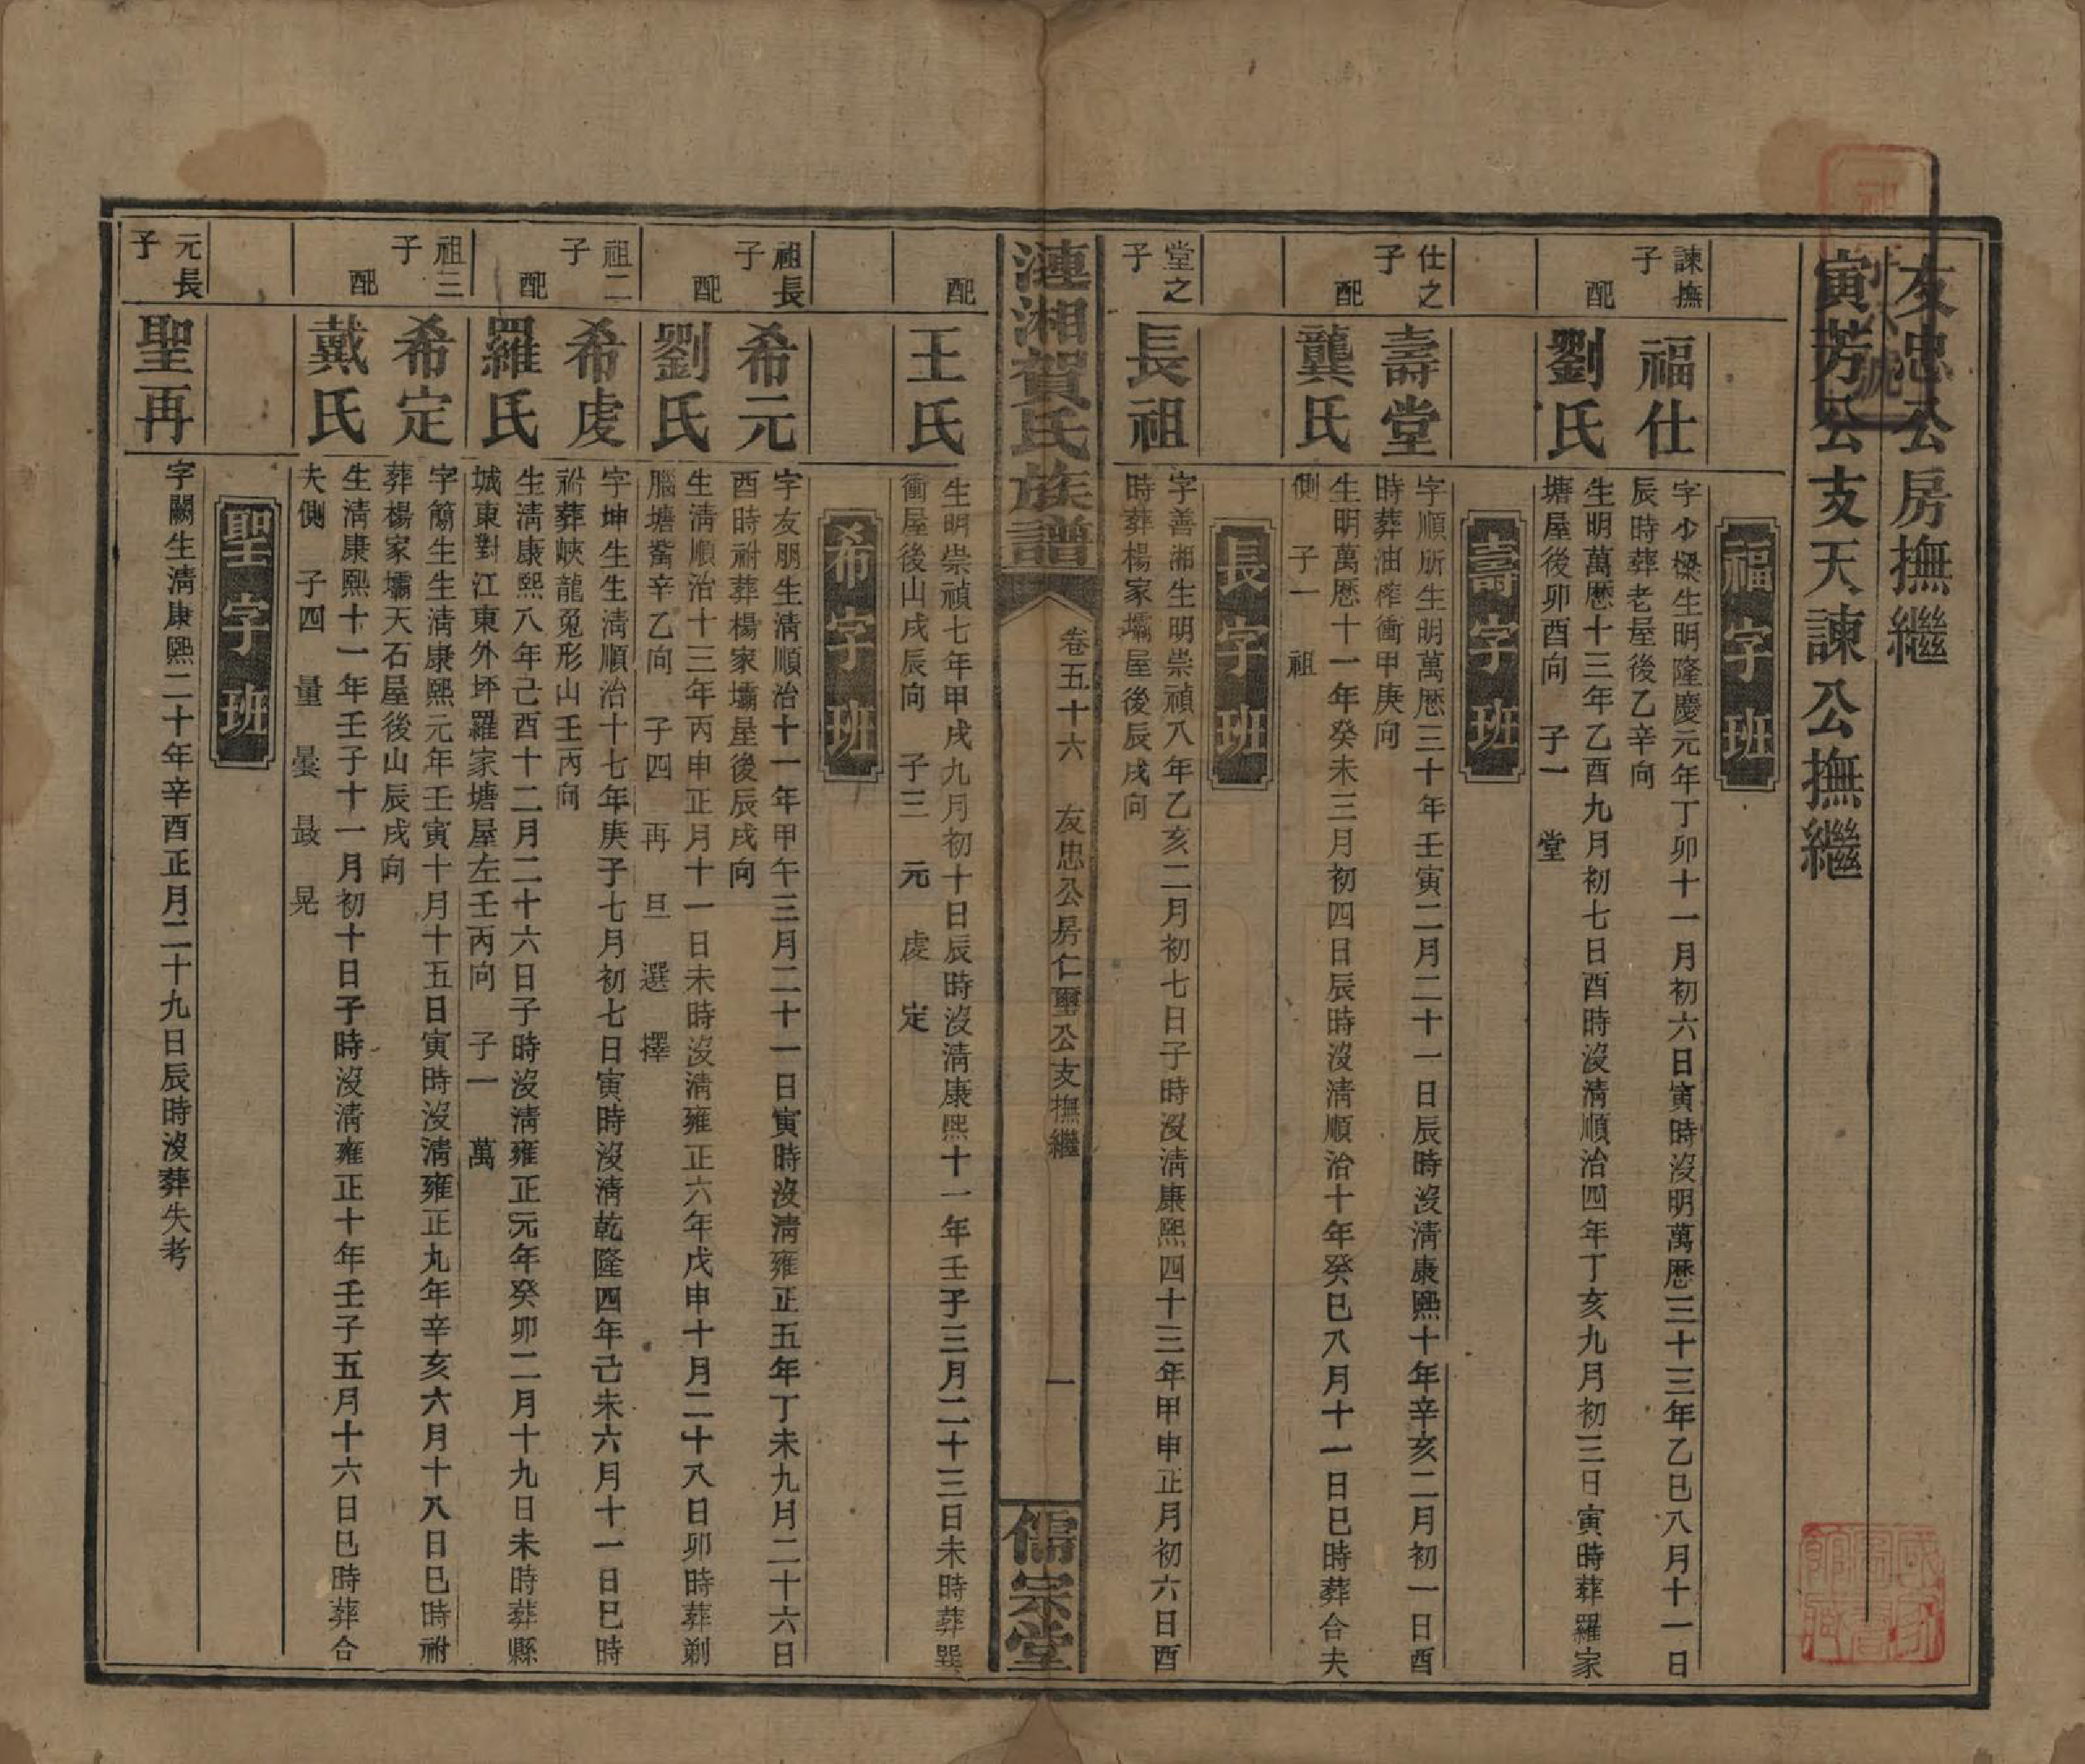 友忠公房撫繼
寅芳公支天諫公撫繼
福字班
諫撫子
福仕
字少樑生明隆慶元年丁卯十一月初六日寅時沒明萬歷三十三年乙巳八月十一日
辰時葬老屋後乙辛向
配
劉氏
生明萬歷十三年乙酉九月初七日酉時沒淸順治四年丁亥九月初三日寅時葬羅家
塘屋後卯酉向 子一 堂
壽字班
仕之子
壽堂
字順所生明萬歷三十年壬寅二月二十一日辰時沒淸康熙十年辛亥二月初一日酉
時葬油榨衝甲庚向
配
龔氏
生明萬歷十一年癸未三月初四日辰時沒淸順治十年癸巳八月十一日巳時葬合夫
側 子一 祖
長字班
堂之子
長祖
字善湘生明崇禎八年乙亥二月初七日子時沒淸康熙四十三年甲申正月初六日酉
時葬楊家壩屋後辰戌向
漣湘賀氏族譜
卷五十六 友忠公房仁璽公支撫繼
一
儒宗堂
配
王氏
生明崇禎七年甲戌九月初十日辰時沒淸康熙十一年壬子三月二十三日未時葬巽
衝屋後山戌辰向 子三 元 虔 定
希字班
祖長子
希元
字友朋生淸順治十一年甲午三月二十一日寅時沒淸雍正五年丁未九月二十六日
酉時祔葬楊家壩屋後辰戌向
配
劉氏
生淸順治十三年丙申正月十一日未時沒淸雍正六年戊申十月二十八日卯時葬剃
腦塘觜辛乙向 子四 再 旦 選 擇
祖二子
希虔
字坤生生淸順治十七年庚子七月初七日寅時沒淸乾隆四年己未六月十一日巳時
祔葬峽龍兔形山壬丙向
配
羅氏
生淸康熙八年己酉十二月二十六日子時沒淸雍正元年癸卯二月十九日未時葬縣
城東對江東外坪羅家塘屋左壬丙向 子一 萬
祖三子
希定
字簡生生淸康熙元年壬寅十月十五日寅時沒淸雍正九年辛亥六月十八日巳時祔
葬楊家壩天石屋後山辰戌向
配
戴氏
生淸康熙十一年壬子十一月初十日子時沒淸雍正十年壬子五月十六日巳時葬合
夫側 子四 量 曇 最 晃
聖字班
元長子
聖再
字闕生淸康熙二十年辛酉正月二十九日辰時沒葬失考